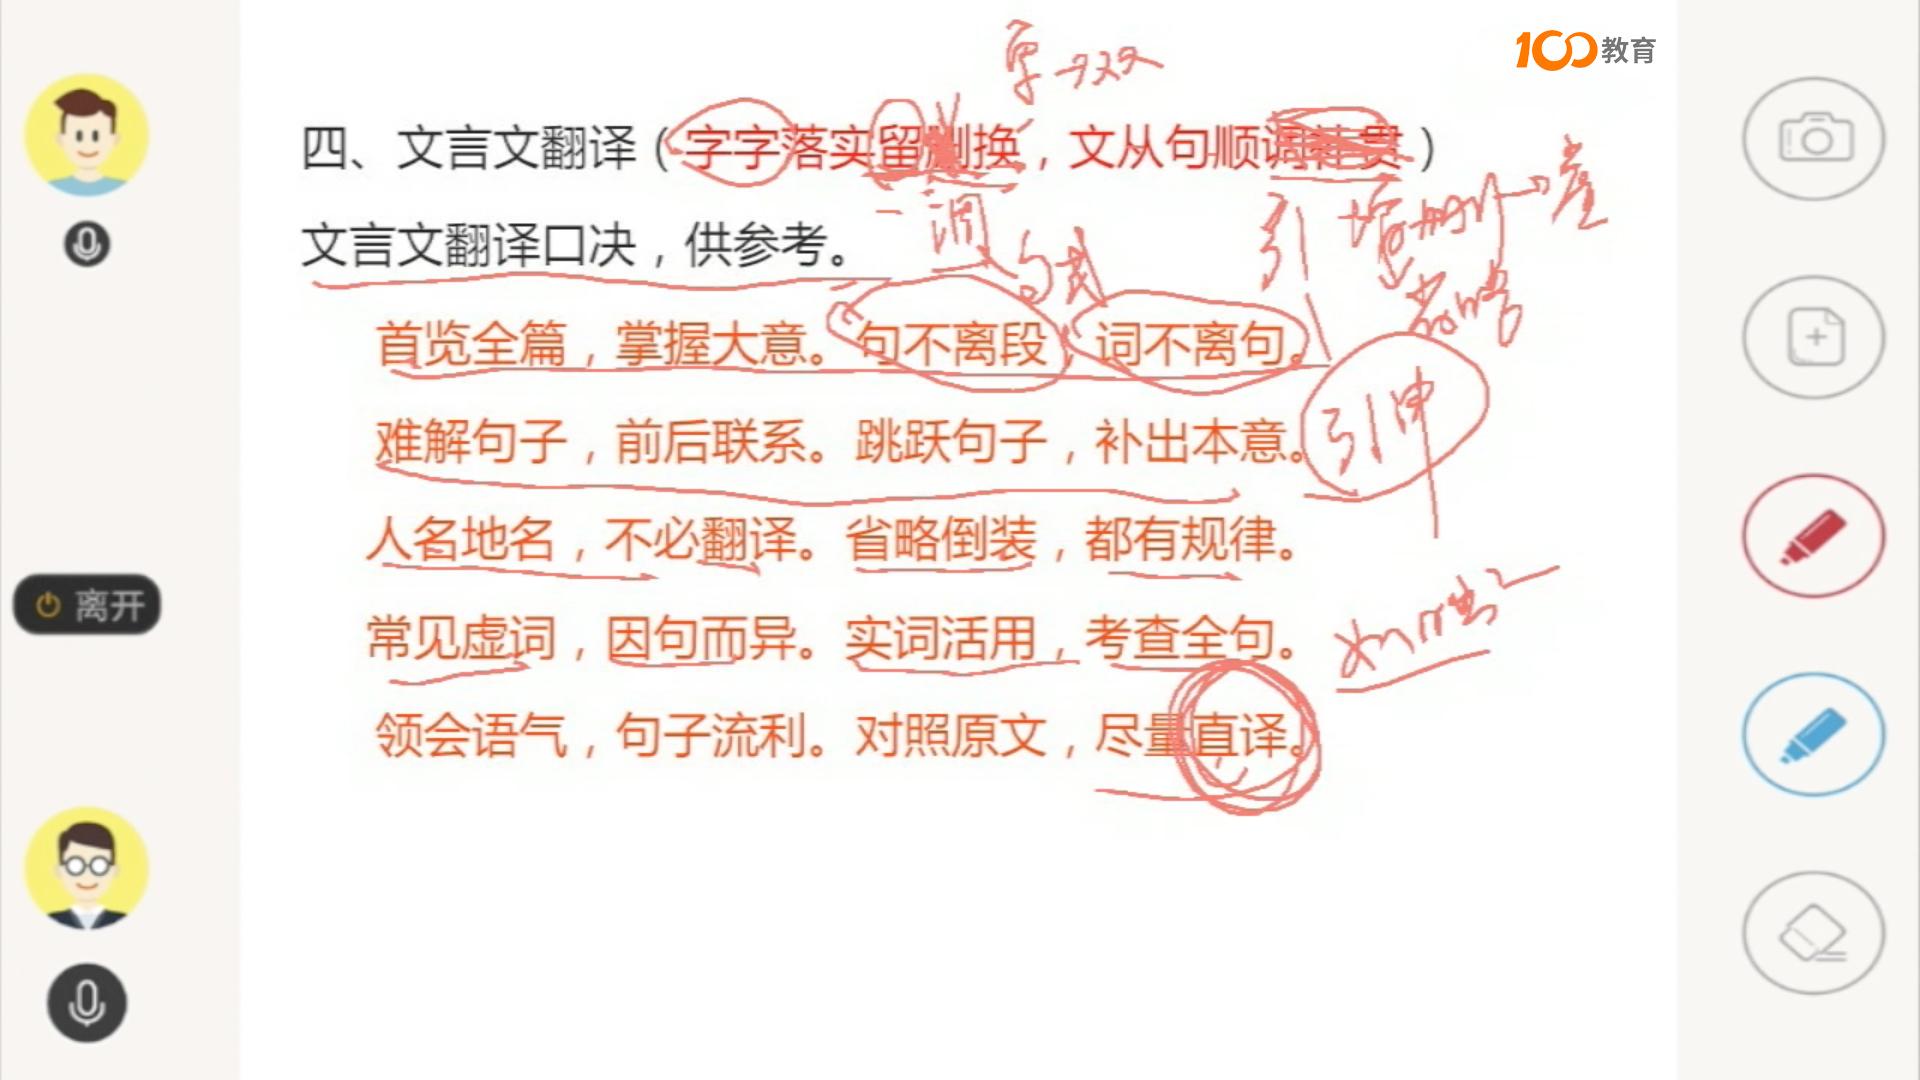 100教育
四、文言文翻译（字字落实留删换，文从句顺调补贯）
文言文翻译口决，供参考。
句式
首览全篇，掌握大意。句不离段，词不离句。
引申
难解句子，前后联系。跳跃句子，补出本意。
人名地名，不必翻译。省略倒装，都有规律。
离开
常见虚词，因句而异。实词活用，考查全句。
领会语气，句子流利。对照原文，尽量直译。